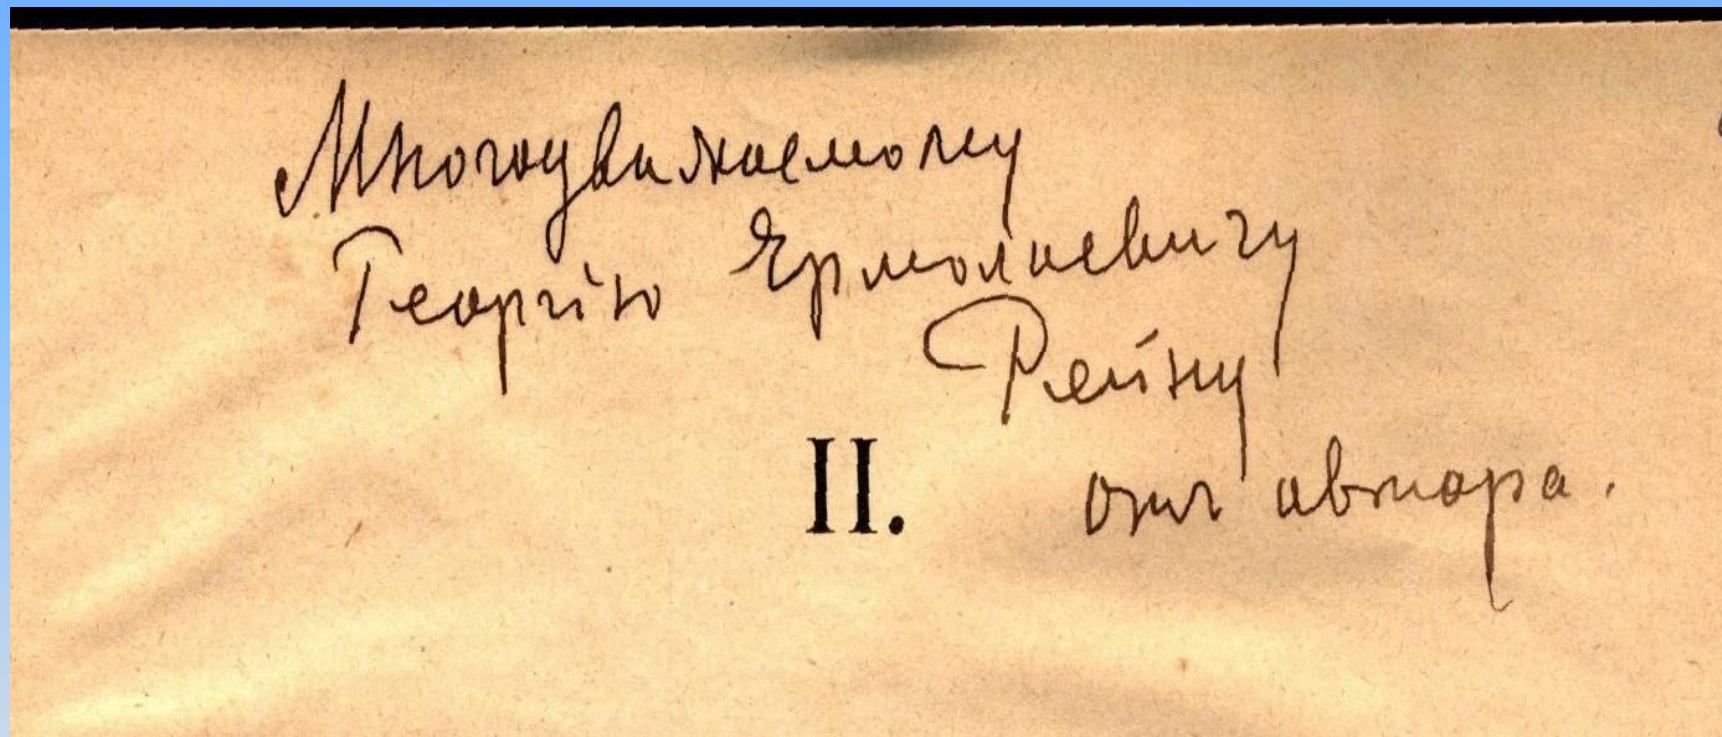 Многоуважаемому
Георгію Ермолаевичу
Рейну
II.
отъ автора.